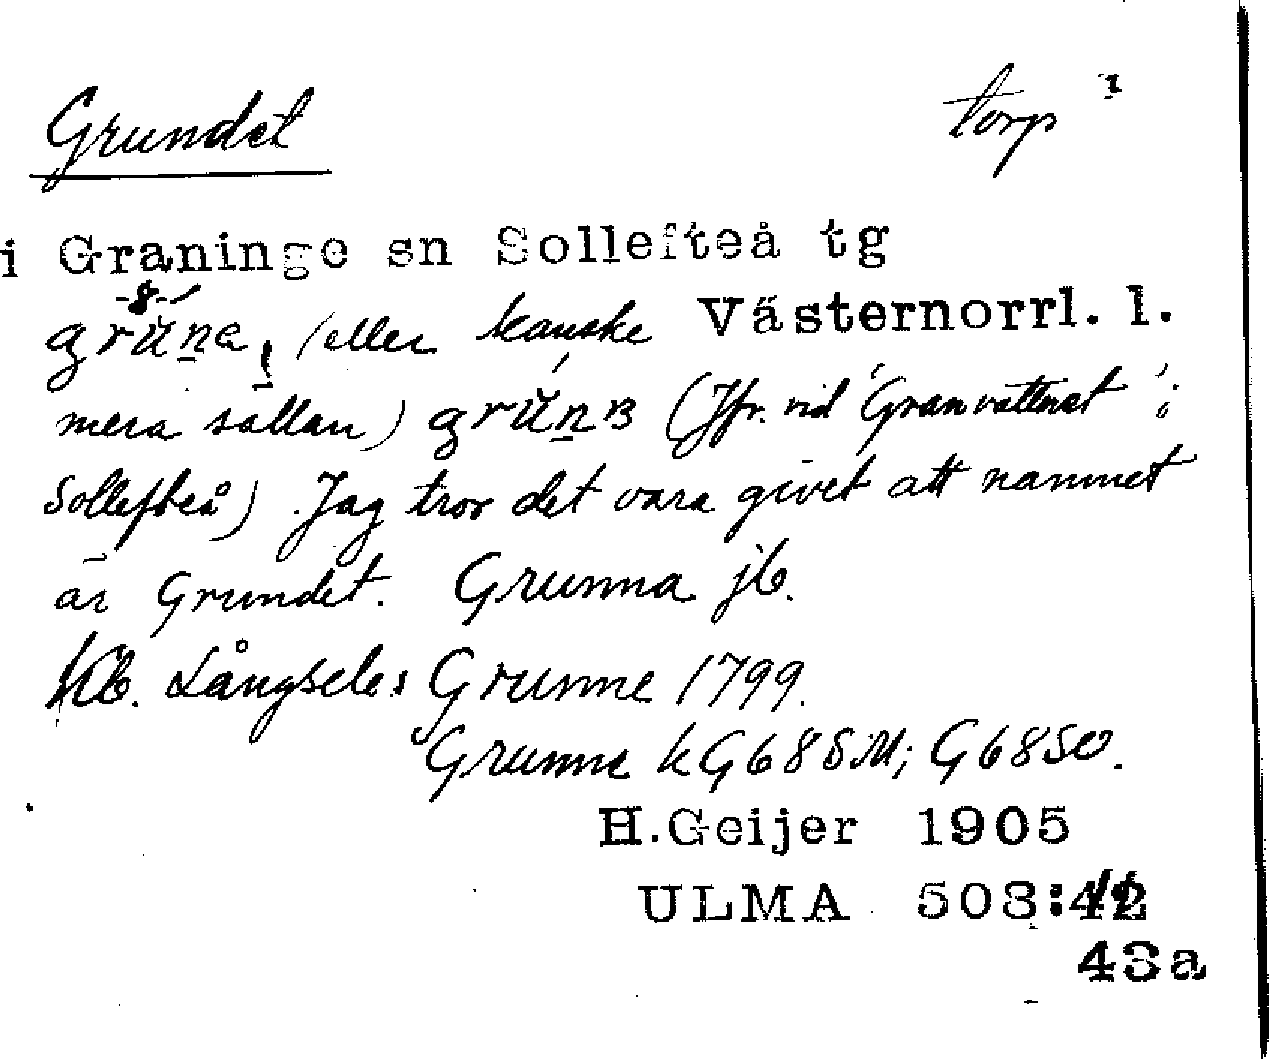 Grundet torp 1
i Graninge sn Sollefteå tg
Västernorrl. l.
grŭna, (eller kanske
mera sällan) grŭnʙ (Jfr. vid Granvattnet i
Sollefteå). Jag tror det vara givet att namnet
är Grundet. Grunna jb.
Kb. Långsele: Grunne 1799.
Grunne k G68SM; G68SV.
H.Geijer 1905
ULMA 503:42
43a